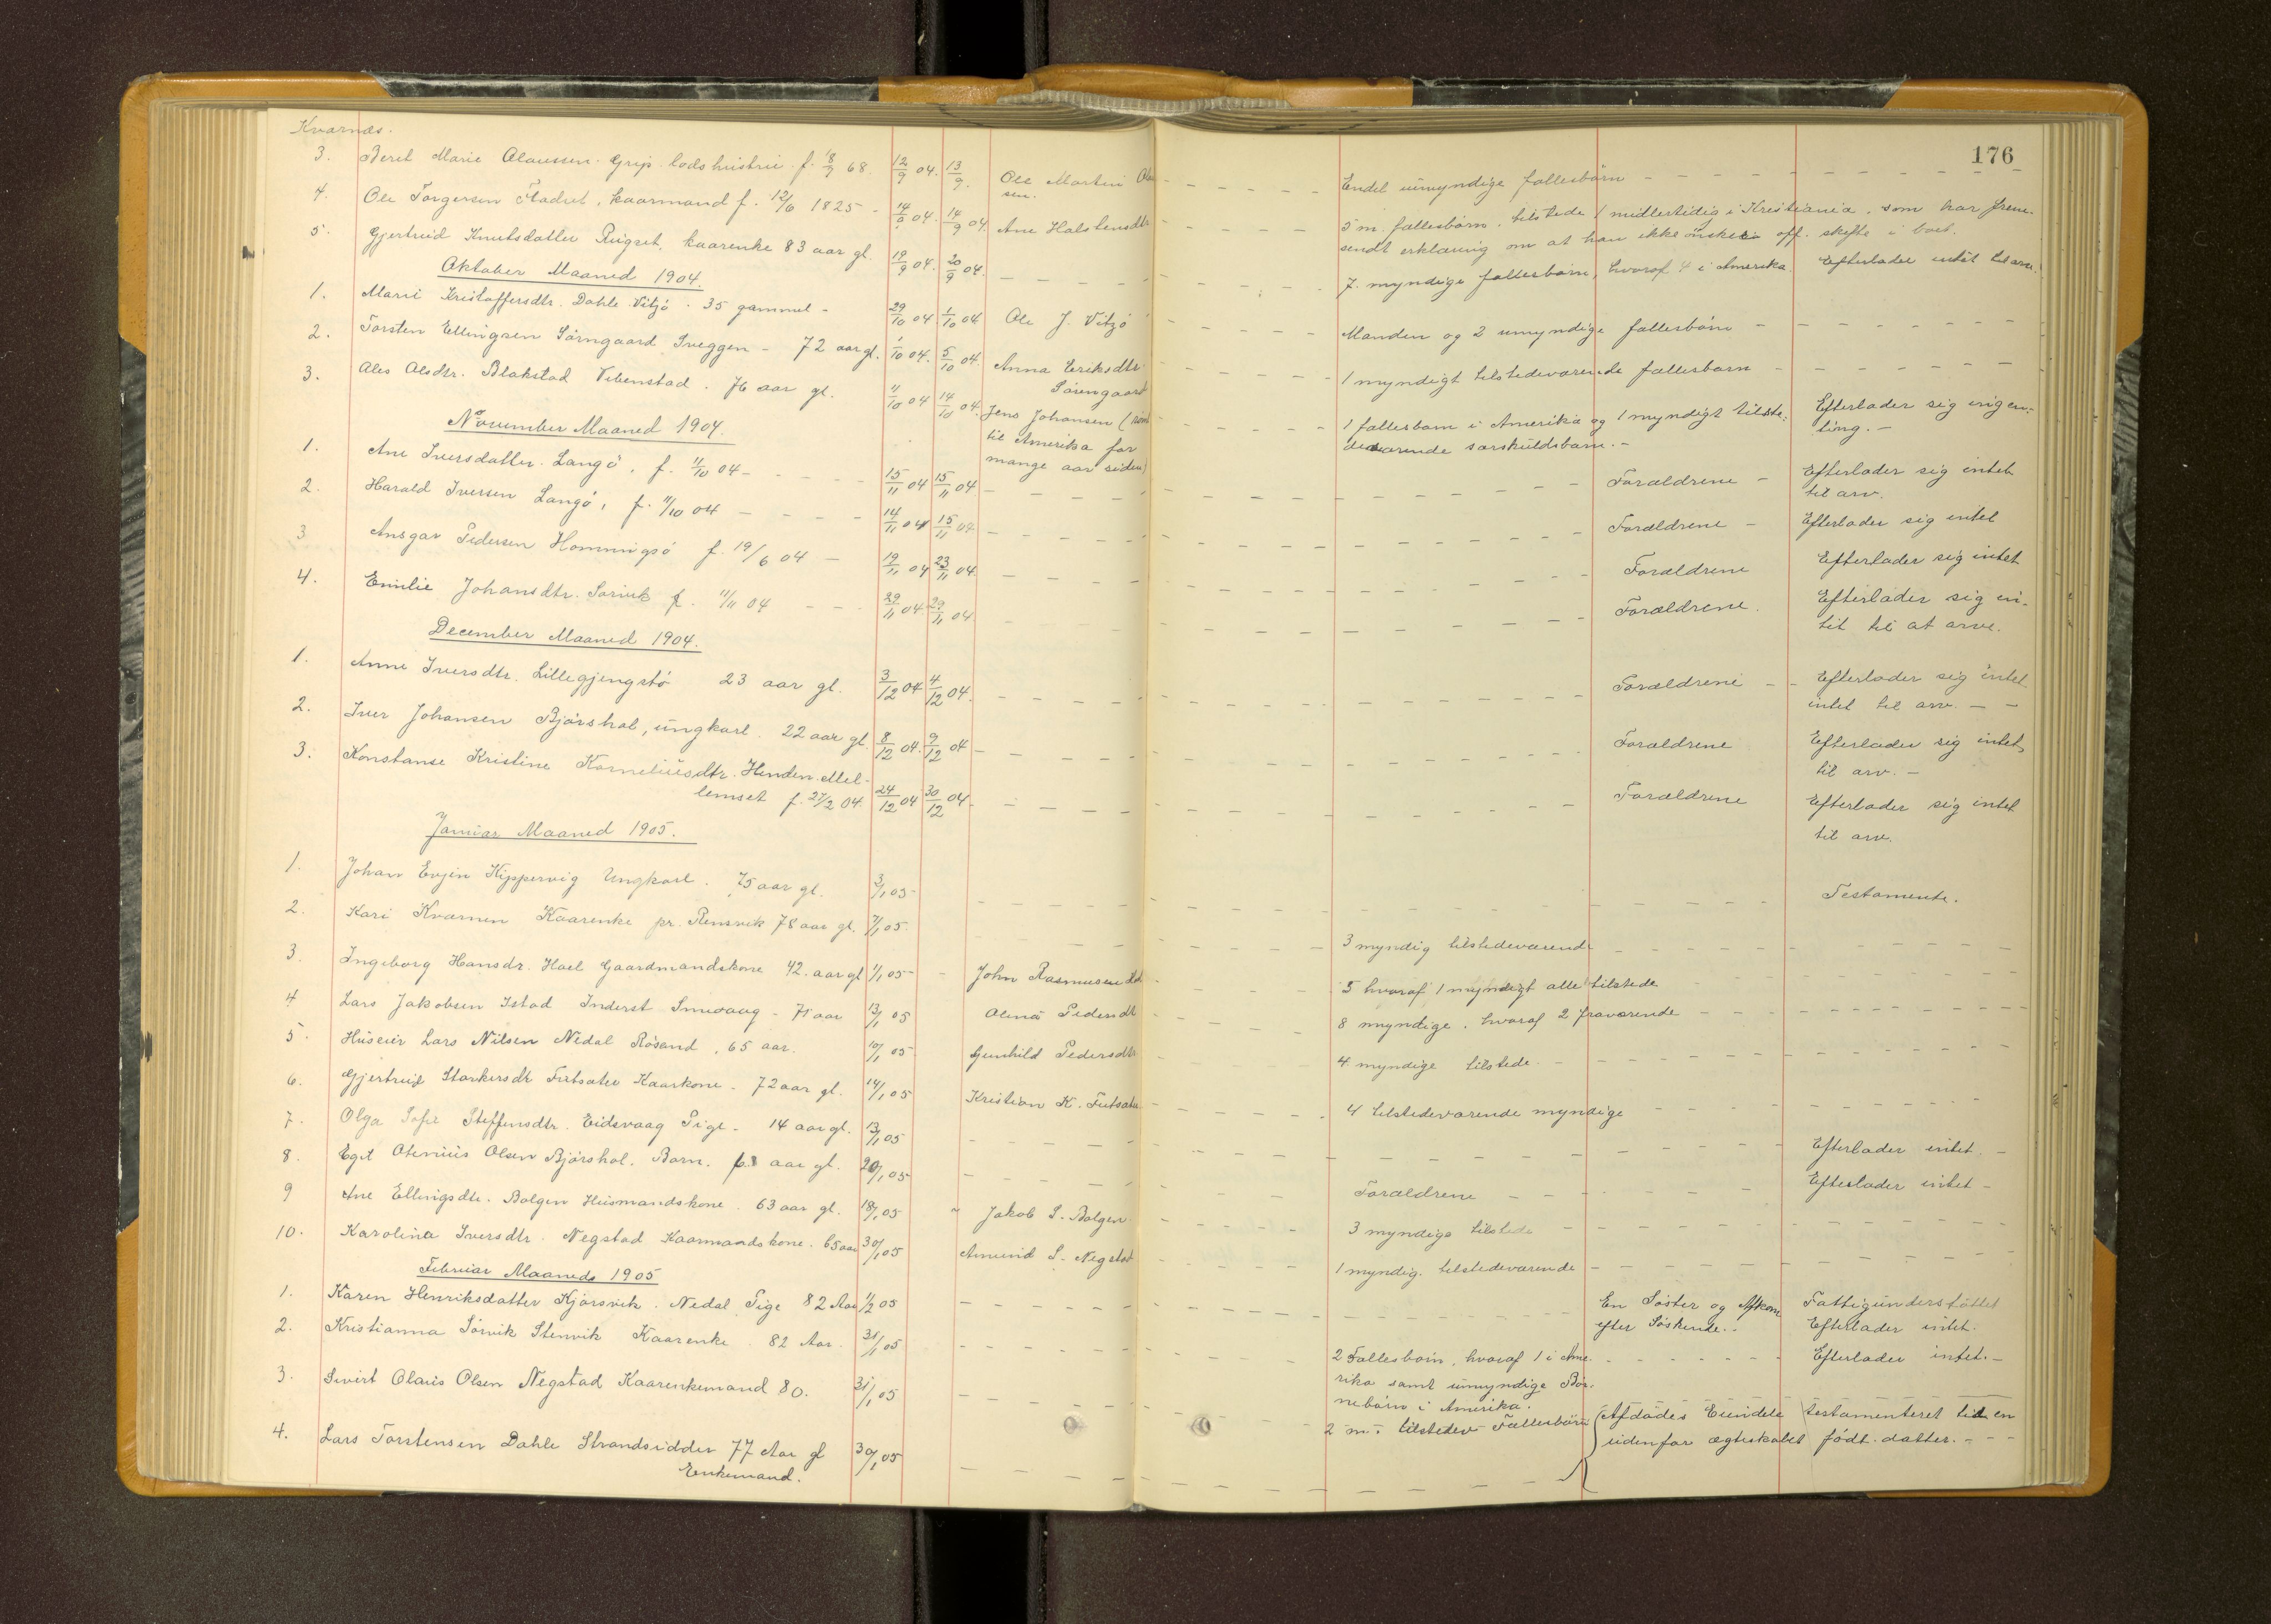 Kvarnæs.
176
3. Beret Marie Olaussen. Grip. lodshustru. f. 18/7 68. 12/9 04. 13/9. Ole Martin Olau- Endel umyndige fællesbörn
sen.
4. Ole Torgersen Fladset, kaarmand f. 12/6 1825 - 14/9 04. 14/9 04. Ane Halstensdtr. 5 m. fællesbörn. tilstede 1 midlertidig i Kristiania, som har frem-
sendt erklæring om at han ikke önsker off. skifte i boet.
5. Gjertrud Knutsdatter Rugset, kaarenke 83 aar gl. 19/9 04. 20/9 04. 7. myndige fællesbörn, hvoraf 4 i Amerika. Efterlader intet til arv.
Oktober Maaned 1904.
1. Marie Kristoffersdtr. Dahle Vitzö. 35 gammel - 29/10 04 1/10 04 Ole J. Vitzö Manden og 2 umyndige fællesbörn
2. Torsten Ellingsen Sörngaard Sveggen - 72 aar gl. 1/10 04. 5/10 04. Anna Eriksdtr. 1 myndigt tilstedeværende fællesbarn
Sörengaard
3. Ales Olsdtr. Blakstad Vebenstad. 76 aar gl. 11/10 04 14/10 04. Jens Johansen (römt 1 fællesbarn i Amerika og 1 myndigt tilste- Efterlader sig ingen-
til Amerika for deværende særskuldsbarn. - ting. -
mange aar siden)
November Maaned 1904.
1. Ane Iversdatter. Langö, f. 11/10 04 - 15/11 04 15/11 04 Forældrene - Efterlader sig intet
til arv.
2. Harald Iversen Langö, f. 11/10 04 14/11 04 15/11 04 Forældrene - Efterlader sig intet
3 Ansgar Pedersen Honningsö f. 19/6 04 - 19/11 04 23/11 04 Forældrene Efterlader sig intet
4. Emilie Johansdtr. Sørvik f. 11/11 04 29/11 04 29/11 04 Forældrene. Efterlader sig in-
tet til at arve.
December Maaned 1904.
1. Anne Iversdtr. Lillegjengstö 23 aar gl. 3/12 04 4/12 04. Forældrene - Efterlader sig intet
intet til arv. - -
2. Iver Johansen Bjørshol, ungkarl. 22 aar gl. 8/12 04. 9/12 04 Forældrene Efterlader sig intet
til arv. -
3. Konstanse Kristine Korneliusdtr. Henden. Mel- Forældrene Efterlader sig intet
lemset f. 27/2 04. 24/12 04 30/12 04. til arv.
Januar Maaned 1905.
1. Johan Evjen Kippervig Ungkarl. 75 aar gl. 3/1 05 Testamente.
2. Kari Kvarnen Kaarenke pr. Rensvik 78 aar gl. 7/1 05 3 myndig tilstedeværende
3. Ingeborg Hansdr. Hoel Gaardmandskone 42. aar gl 11/1 05 John Rasmussen Hoel 5 hvoraf 1 myndigt alle tilstede
4 Lars Jakobsen Istad Inderst Smevaag - 71 aar 13/1 05 Olina Pedersdt 8 myndige. hvoraf 2 fraværende
5 Huseier Lars Nilsen Nedal Rösand, 65 aar. 10/1 05 Gunhild Pedersdtr 4 myndige tilstede.
6. Gjertrud Storkersdt Futsæter Kaarkone - 72 aar gl. 14/1 05 Kristian K. Futsæter 4 tilstedeværende myndige
7. Olga Sofie Steffensdtr. Eidsvaag Pige - 14 aar gl. 13/1 05 Efterlader intet. -
8. Egil Otenius Olsen Bjørshol. Barn. aar gl. 20/1 05 Forældrene Efterlader intet -
9 Ane Ellingsdtr. Bolgen Husmandskone. 63 aar gl. 18/1 05 Jakob S. Bolgen 3 myndige tilstede
10. Karolina Iversdtr. Negstad Kaarmandskone. 65 aar 30/1 05 Amund S. Negstad 1 myndig. tilstedeværende
Februar Maaneds 1905
1. Karen Henriksdatter Kjørsvik. Nedal Pige 82 Aar 1/2 05 En Söster og Afkom Fattigunderstöttet
efter Söskende. Efterlader intet.
2. Kristianna Sörvik Stenvik Kaarenke. 82 Aar. 31/1 05 2 Fællesbörn, hvoraf 1 i Ame- Efterlader intet. -
rika samt umyndige Bör-
nebörn i Amerika.
3. Sivert Olaus Olsen Negstad Kaarenkemand 80. 31/1 05 2 m. tilstedev Fællesbörn (Afdødes Eiendele testamenteret til en
udenfor ægteskabet født datter.
4. Lars Torstensen Dahle Strandsidder 77 Aar gl 30/1 05
Enkemand.